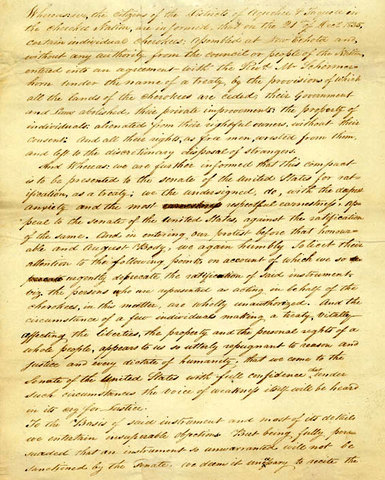 Whereas, the citizens of the Districts of Aquohee & Taquoee in
the Cherokee Nation, are informed, that on the 29th of Dec. 1835,
certain individual Cherokees, assembled at New Echota and,
without any authority from the council or people of the Nation
entered into an agreement with the Revd. Mr. Schermer-
horn under the name of a treaty, by the provisions of which
all the lands of the cherokees are ceded, their Government
and laws abolished, their private improvements the property of
individuals alienated from their rightful owners, without their
consent. And all their rights, as free men, wrested from them,
and left to the discretionary disposal of strangers.
And whereas we are further informed that this compact
is to be presented to the senate of the United States for rat-
ification, as a treaty; we the undersigned, do, with the deepest
anxiety and the most respectful earnestness, Ap-
peal to the senate of the United States, against the ratification
of the same. And in entering our protest before that honour-
able and August Body, we again humbly Solicit their
attention to the following points, on account of which we so
urgently deprecate the ratification of said instrument.
viz, the persons who are represented as acting in behalf of the
cherokees, in this matter, are wholly unauthorized. And the
circumstance of a few individuals making a treaty vitally
affecting the liberties, the property and the personal rights of a
whole people, appears to us so utterly repugnant to reason and
justice and every dictate of humanity, that we come to the
Senate of the United States with full confidence that under
such circumstances the voice of weakness itself will be heard
in its cry for Justice.
To the Basis of said instrument and most of its details
we entertain insuperable objections But being fully per-
suaded that an instrument so unwarranted will not be
sanctioned by the Senate, we deem it unnecessary to recite the